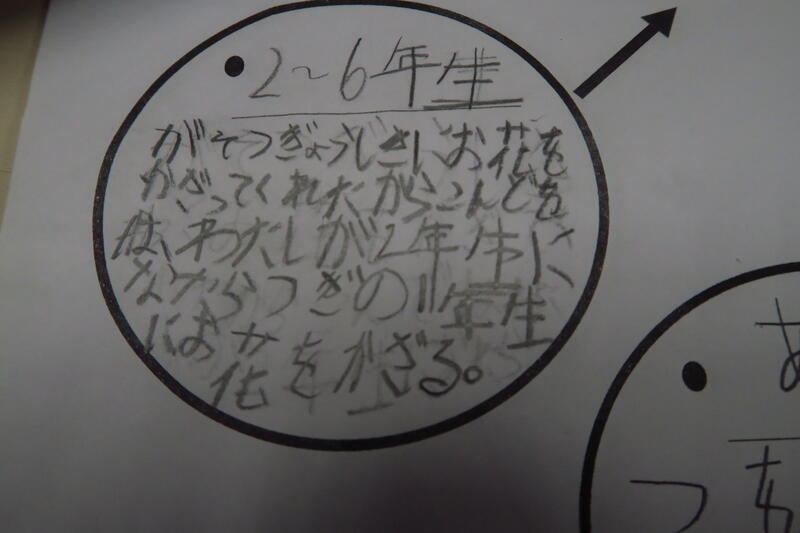 2~6年生
がそつぎょうしきにお花を
かざってくれたからこんど
は、わたしが2年生に
なからつぎの1年生
にお花をかざる。
あ
つ